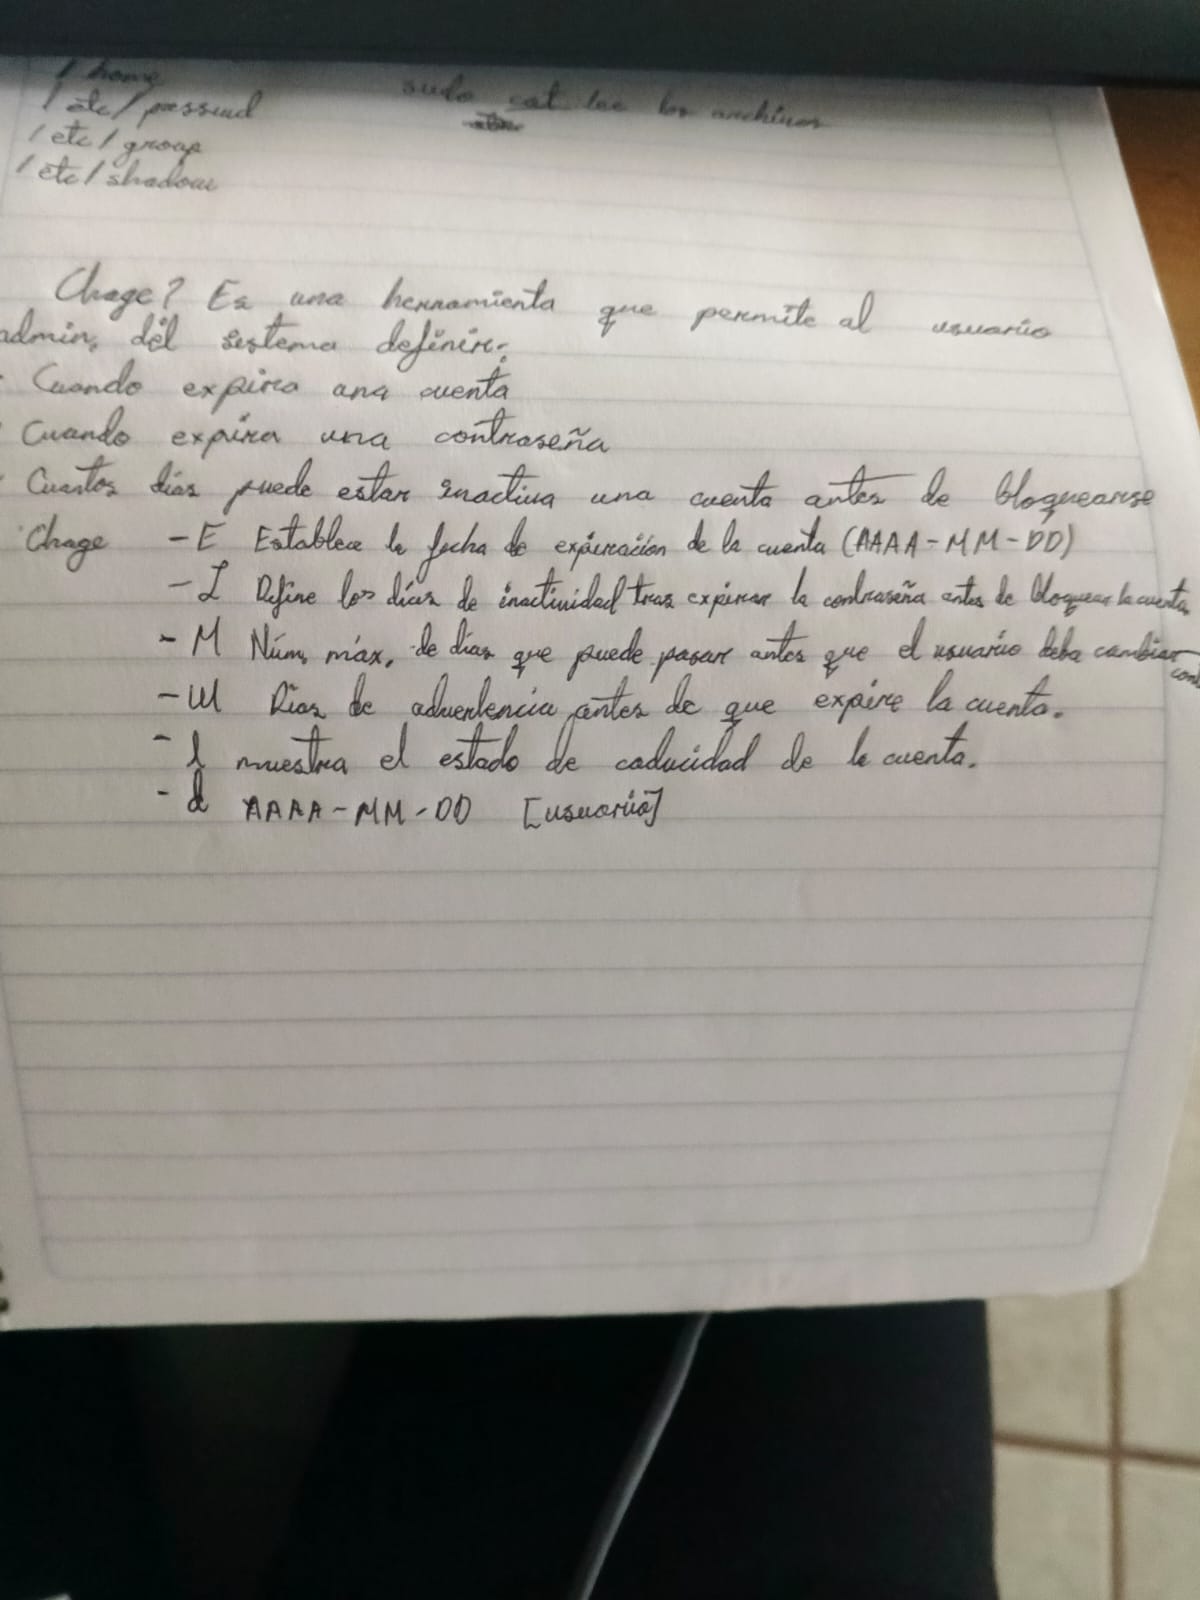 / home
/ etc/ passwd
sudo cat lee los archivos
/ etc / group
/ etc / shadow
Chage? Es una herramienta que permite al usuario
admin. del sistema definir:
- Cuando expira una cuenta
- Cuando expira una contraseña
- Cuantos dias puede estar inactiva una cuenta antes de bloquearse
Chage - E Establece la fecha de expiración de la cuenta (AAAA-MM-DD)
- I Define los días de inactividad tras expirar la contraseña antes de bloquear la cuenta
- M Núm. máx. de días que puede pasar antes que el usuario deba cambiar
- W Dias de advertencia antes de que expire la cuenta.
- l muestra el estado de caducidad de la cuenta.
- d AAAA-MM-DD [usuario]